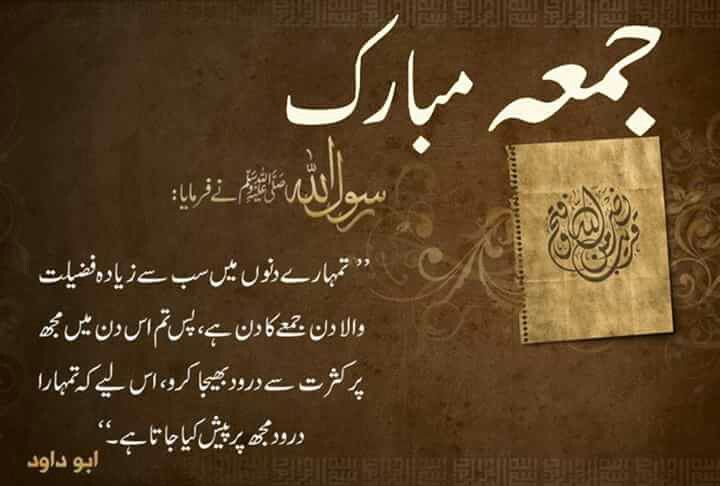 جمعہ مبارک
رسول اللہ ﷺ نے فرمایا:
”تمہارے دنوں میں سب سے زیادہ فضیلت
والا دن جمعے کا دن ہے، پس تم اس دن میں مجھ
پر کثرت سے درود بھیجا کرو، اس لیے کہ تمہارا
درود مجھ پر پیش کیا جاتا ہے۔“
ابو داود
نصر من الله وفتح قريب